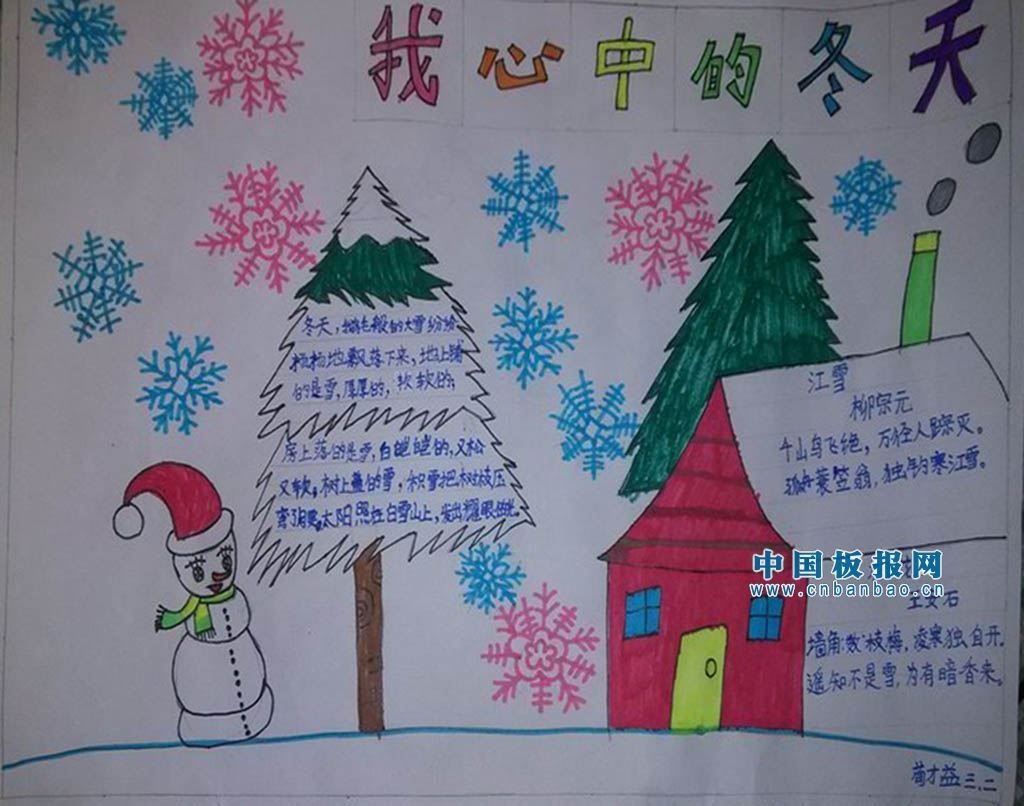 我心中的冬天
冬天，鹅毛般的大雪纷纷
扬扬地飘落下来，地上铺
的是雪，厚厚的，软软的；
房上落的是雪，白皑皑的，又松
又软。树上盖的雪，积雪把树枝压
弯了腰。太阳照在白雪山上，发出耀眼的光。
江雪
柳宗元
千山鸟飞绝，万径人踪灭。
孤舟蓑笠翁，独钓寒江雪。
中国板报网
www.cnbanbao.cn
王安石
墙角数枝梅，凌寒独自开。
遥知不是雪，为有暗香来。
三、二